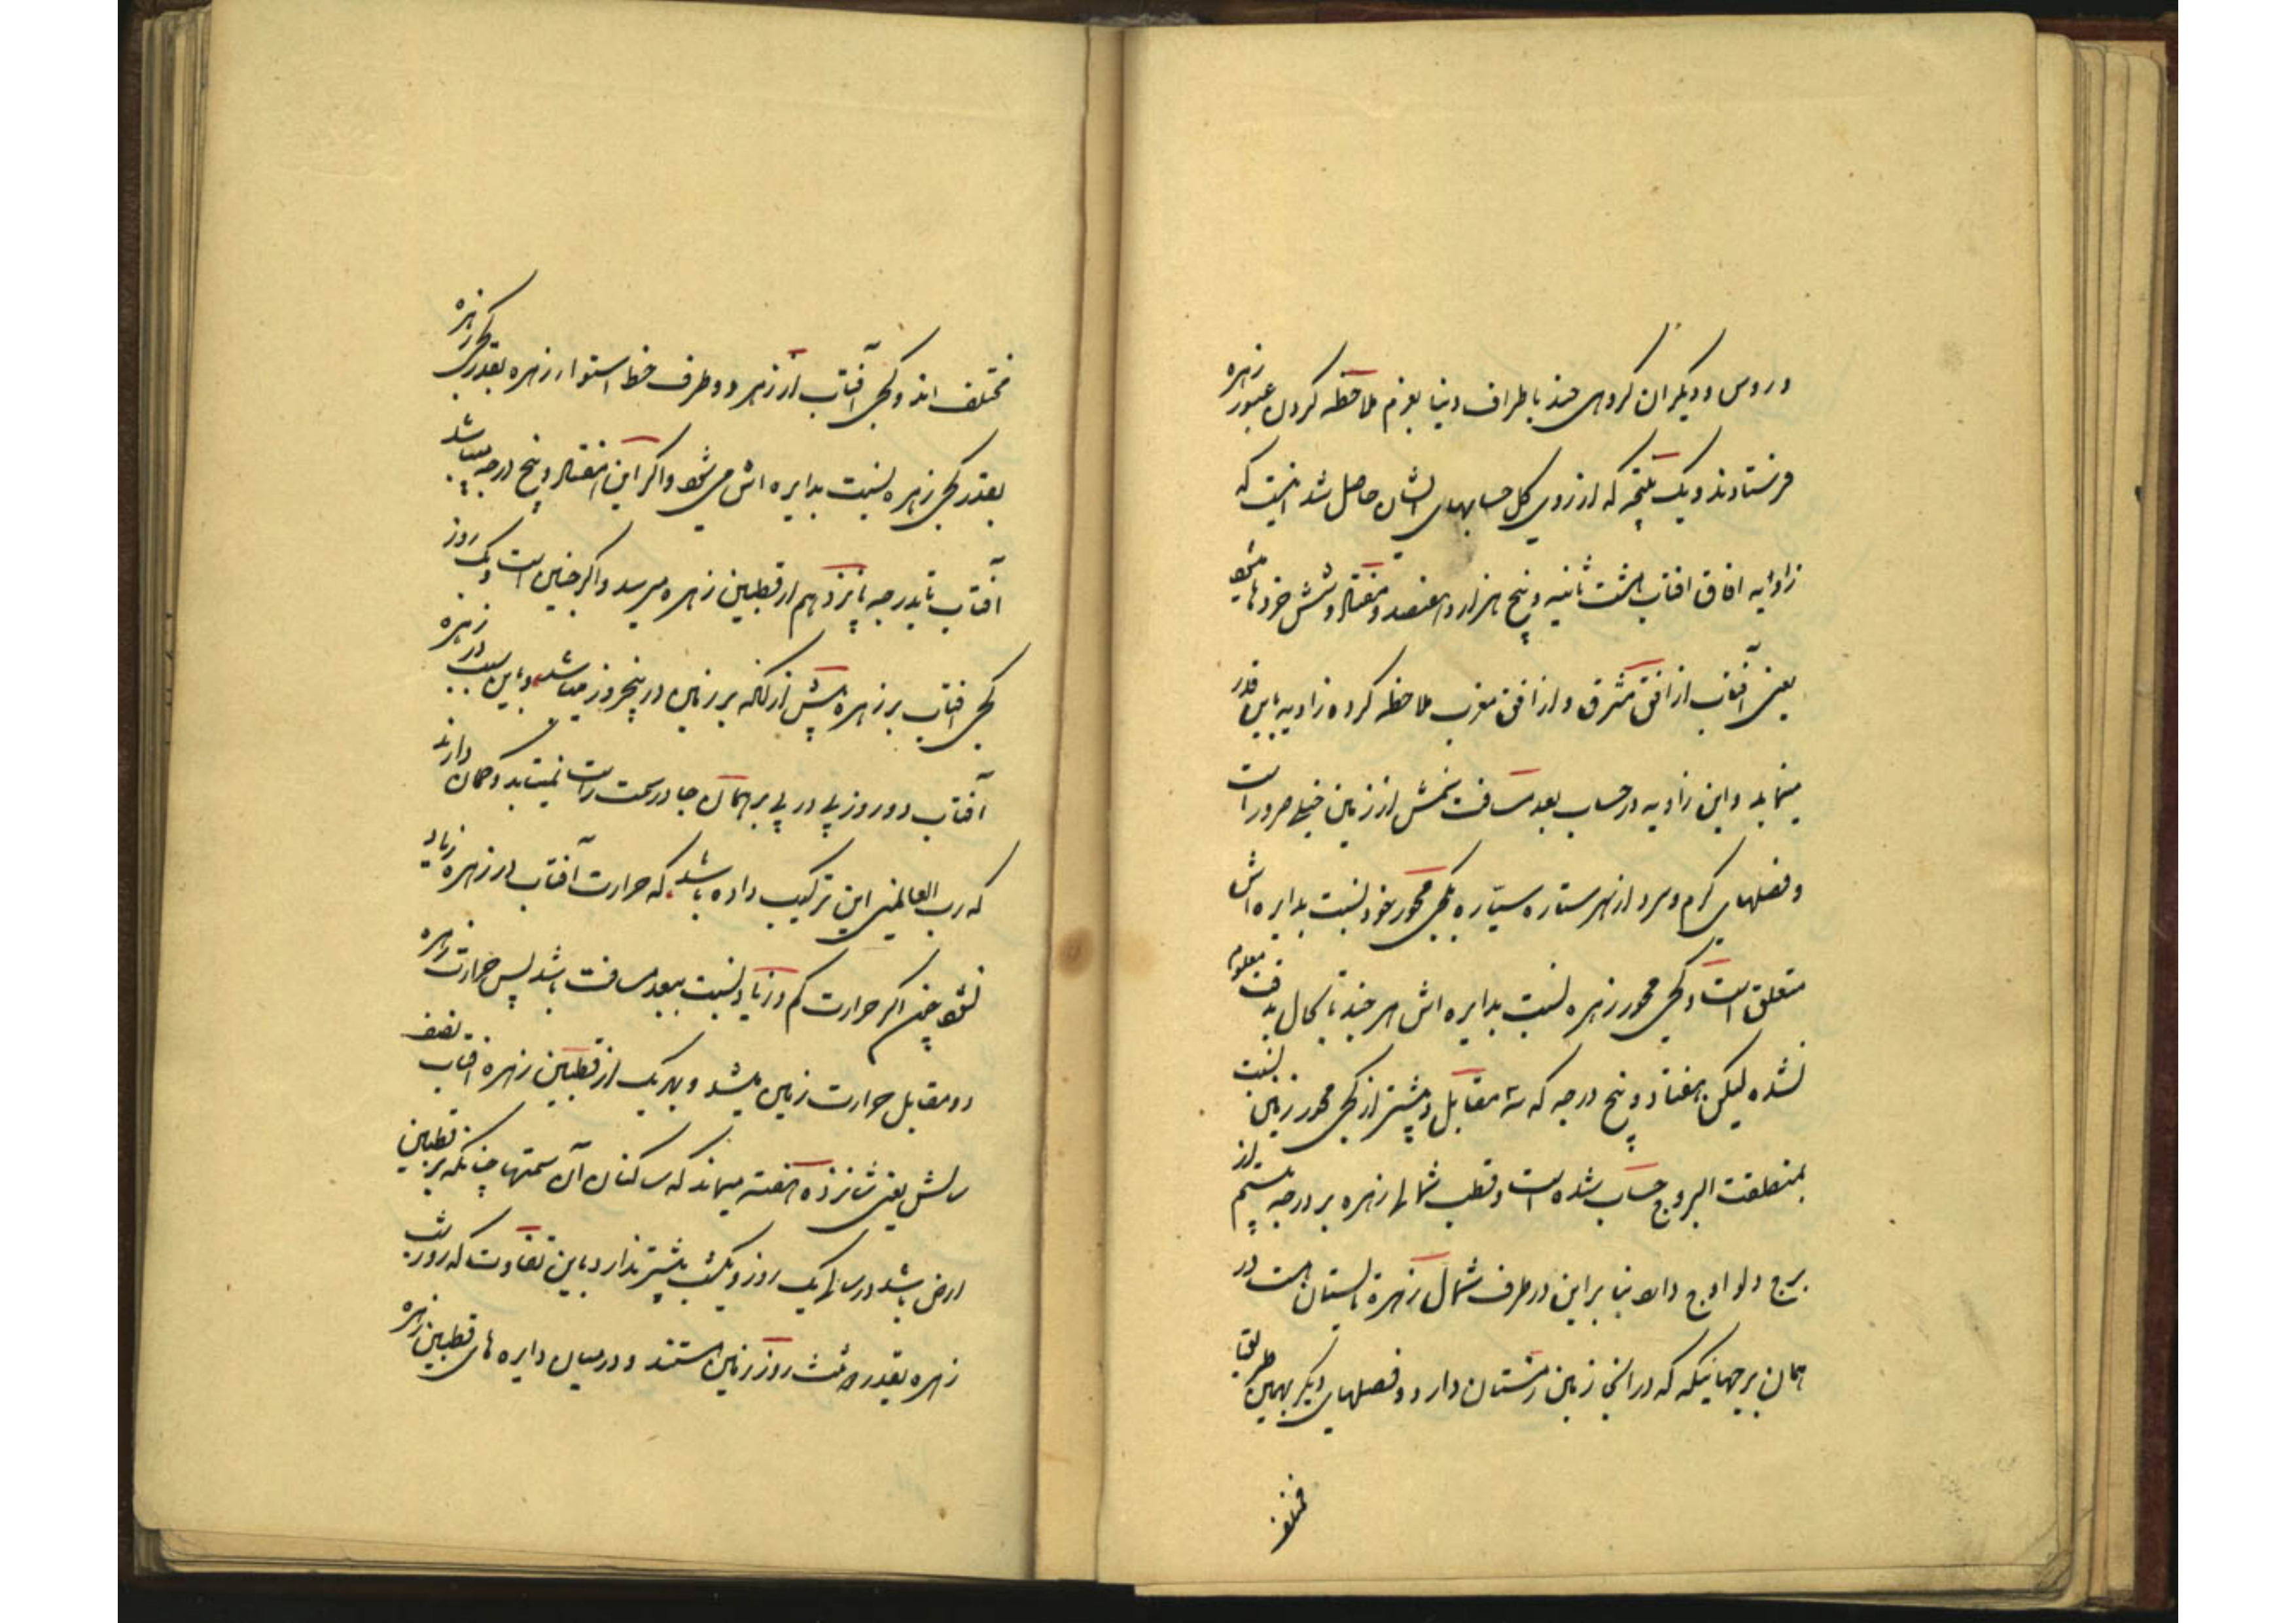 و روس و دیکران کروهی چند باطراف دنیا بعزم ملاحظه کردن عبور زهره
فرستادند و یک نتیجه که از روی کل حسابهای ایشان حاصل شد اینست که
زاوایه افاق افتاب هشت ثانیه و پنج هزار و هفتصد و هفتاد و شش خردها میشود
یعنی آفتاب از افق مشرق و از افق مغرب ملاحظه کرده زاویه باین قدر
مینماید و این زاویه در حساب بعد مسافت شمش از زمین خیلی ضرور است
و فصلهای کرم و سرد از هر ستاره سیاره بکجی محور خود نسبت بدایره اش
متعلق است و کجی محور زهره نسبت بدایره اش هر چند تا بکمال بدقت معلوم
نشده لیکن بهفتاد و پنج درجه که سه مقابل و بیشتر از کجی محور زمین نسبت
بمنطقت البروج حساب شده است و قطب شمالی زهره بر درجه بیستم از
برج دلو اوج دارد بنا براین در طرف شمال زهره تابستان است در
همان برجهائیکه که در انجا زمین زمستان دارد و فصلهای دیکر بهمین طریقا
مختلف
مختلف اند و کجی آفتاب از زهر دو طرف خط استوار زهره بقدر کجی زهره
بقدر کجی زهره نسبت بدایره اش می شود و اکر این هفتاد و پنج درجه میباشد
آفتاب تا بدرجه پانزدهم از قطبین زهره میرسد و اکر چنین است و یک روز
کجی افتاب بر زهره بیش از انکه بر زمین در پنجروز میباشد و باین سبب در زهره
آفتاب دو روز پی در پی بر همان جا در سمت راست نمیتابد و کمان دارند
که رب العالمین این ترکیب داده باشد که حرارت آفتاب در زهره زیاد
نشود چون اکر حرارت کم و زیاد نسبت ببعد مسافت باشد پس حرارت زهره
دو مقابل حرارت زمین میشد و بهر یک از قطبین زهره افتاب نصف
سالش یعنی شانزده هفته میماند که ساکنان آن سمتها چنانکه بر قطبین
ارض باشد در سالی یک روز و یکشب بیشتر ندارد باین تفاوت که روز و شب
زهره بقدر دو ثلث روز زمین استند و در میان دایره های قطبین زهره